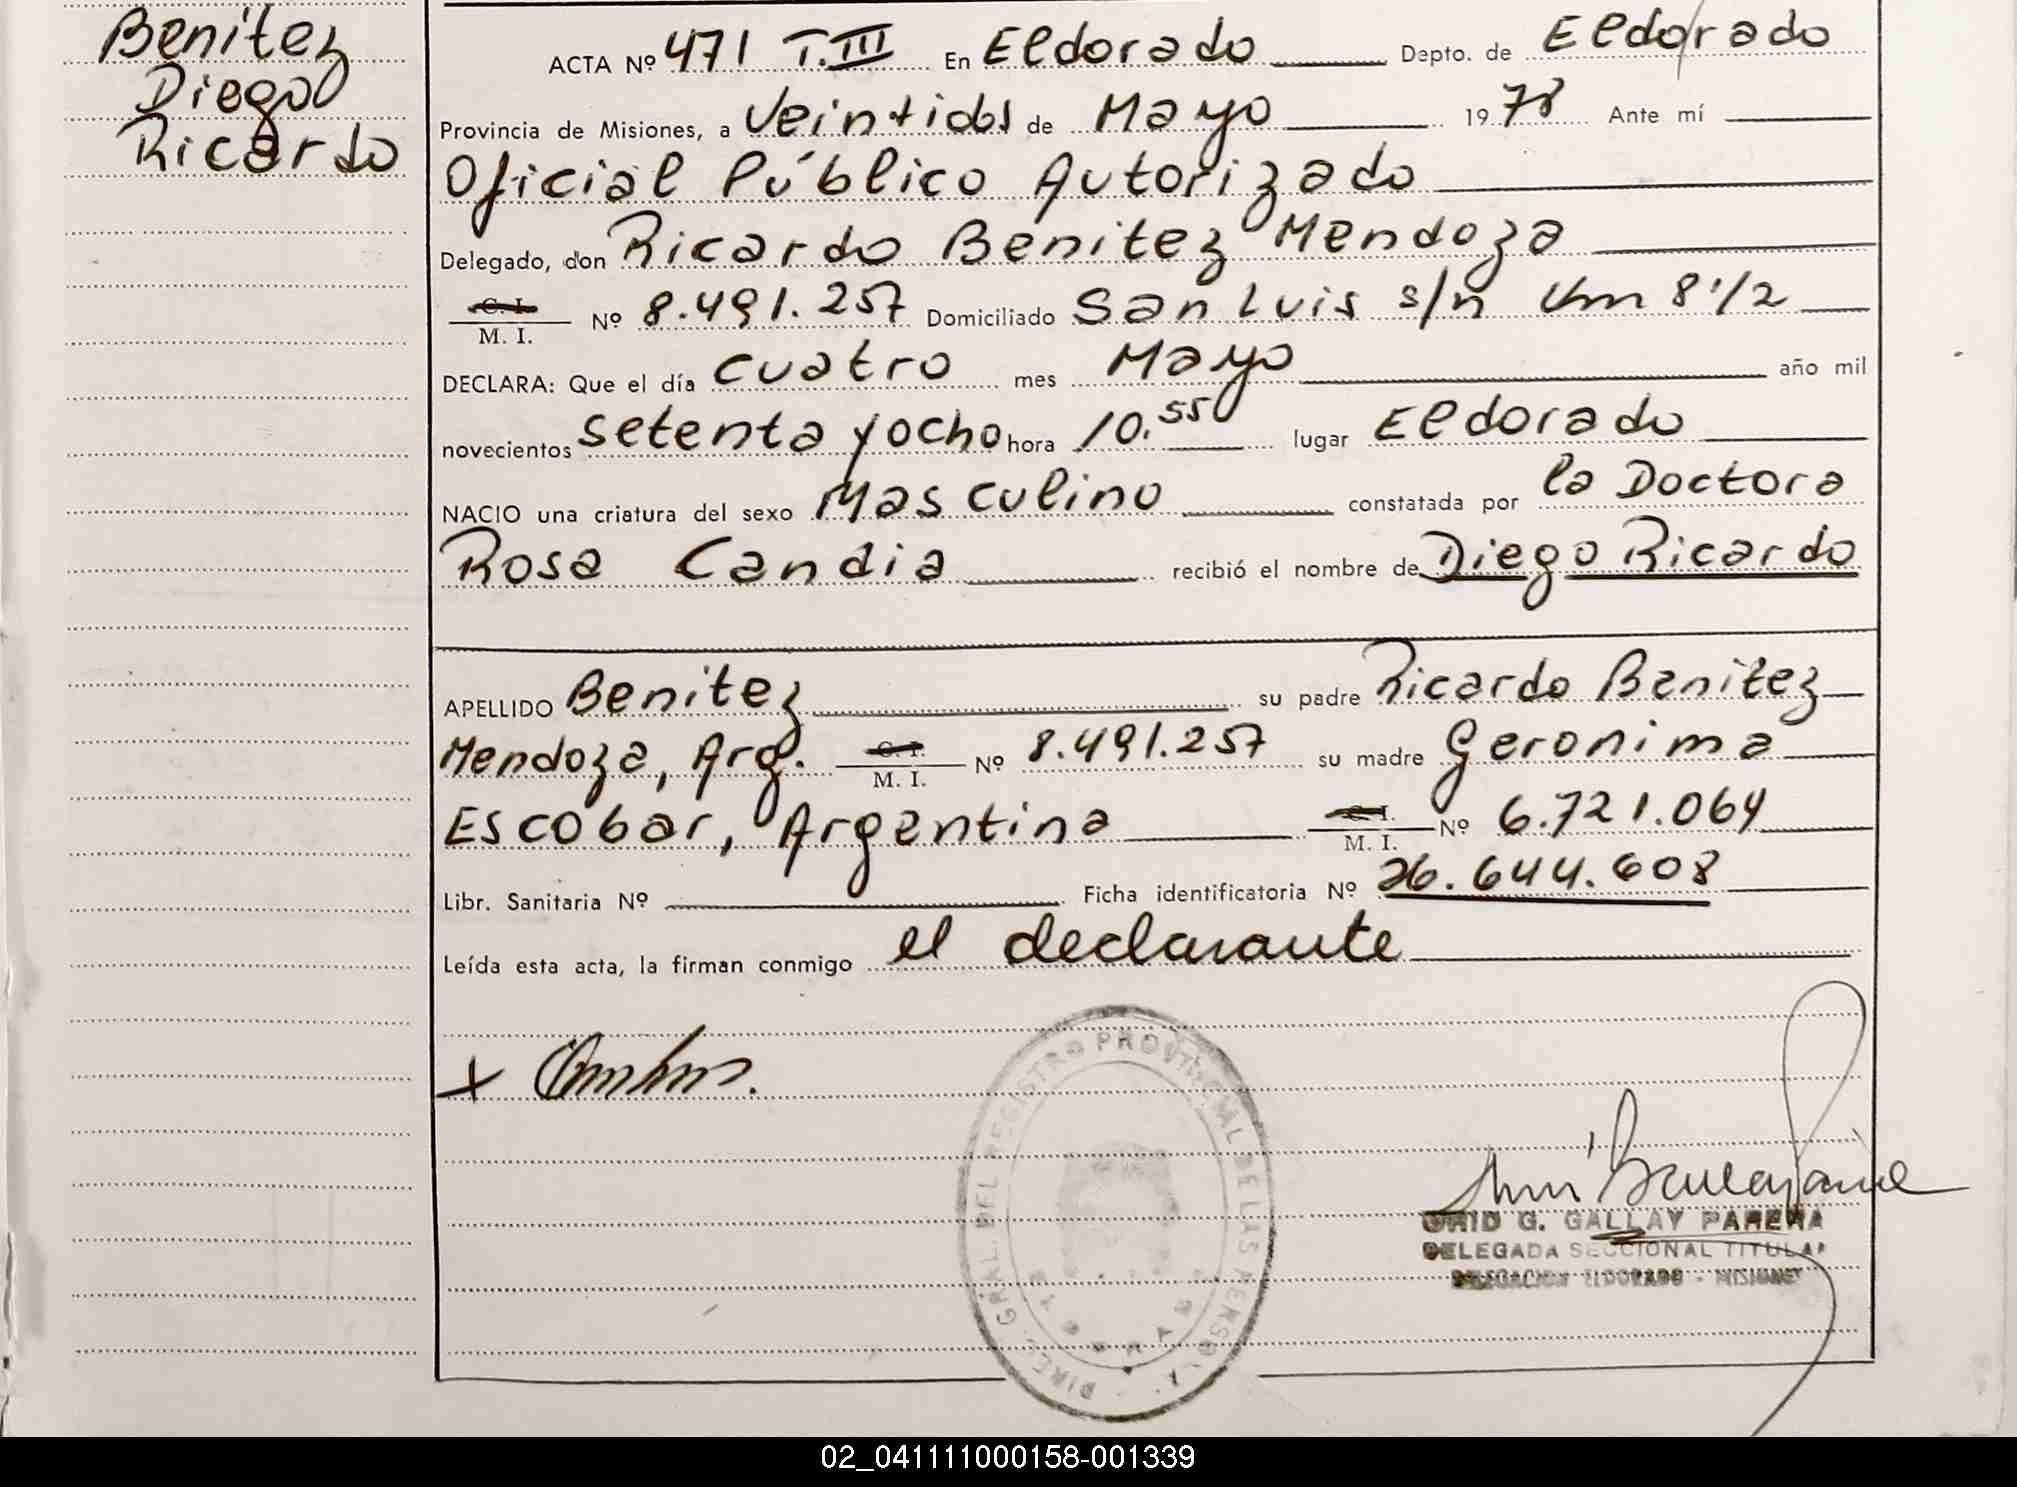 Benitez
Diego
Ricardo
ACTA Nº 471 T.III En Eldorado Depto. de Eldorado
Provincia de Misiones, a Veintidos de Mayo 1978 Ante mí
Oficial Público Autorizado
Delegado, don Ricardo Benitez Mendoza
C. I.
M. I. Nº 8.491.257 Domiciliado San Luis s/n Km 8 1/2
DECLARA: Que el día cuatro mes Mayo año mil
novecientos setenta y ocho hora 10.55 lugar Eldorado
NACIO una criatura del sexo Masculino constatada por la Doctora
Rosa Candia recibió el nombre de Diego Ricardo
APELLIDO Benitez su padre Ricardo Benitez
Mendoza, Arg. C. I. M. I. Nº 8.491.257 su madre Geronima
Escobar, Argentina C. I. M. I. Nº 6.721.064
Libr. Sanitaria Nº Ficha identificatoria Nº 26.644.608
Leída esta acta, la firman conmigo el declarante
x
DIREC. GRAL. DEL REGISTRO PROVINCIAL DE LAS PERSONAS
G. GALLAY PARERA
DELEGADA SECCIONAL TITULAR
DELEGACION ELDORADO - MISIONES
02_041111000158-001339